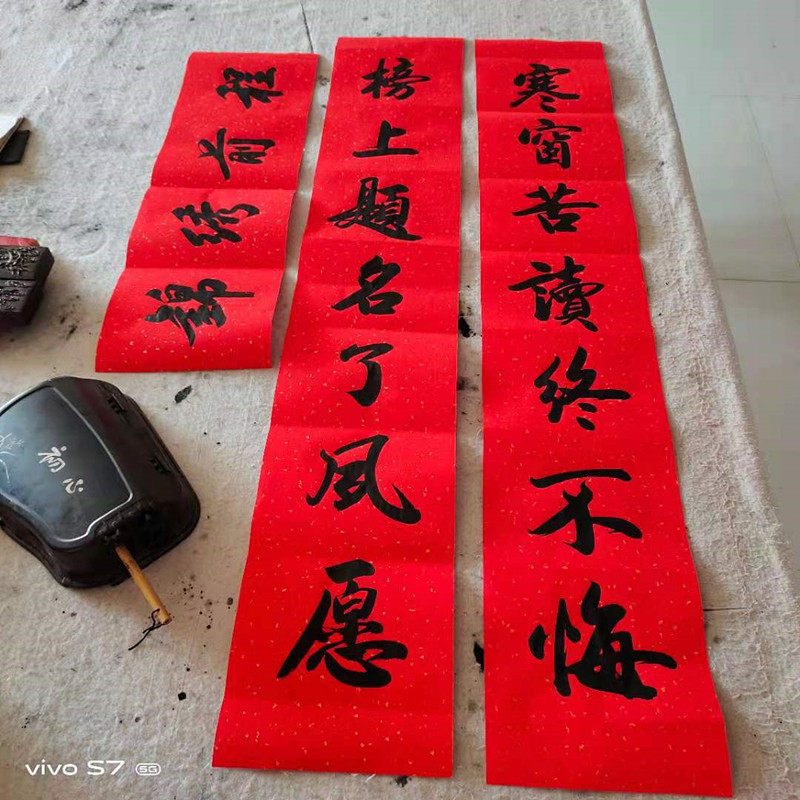 寒窗苦讀終不悔
榜上題名了夙愿
錦綉前程
初心
vivo S7 5G